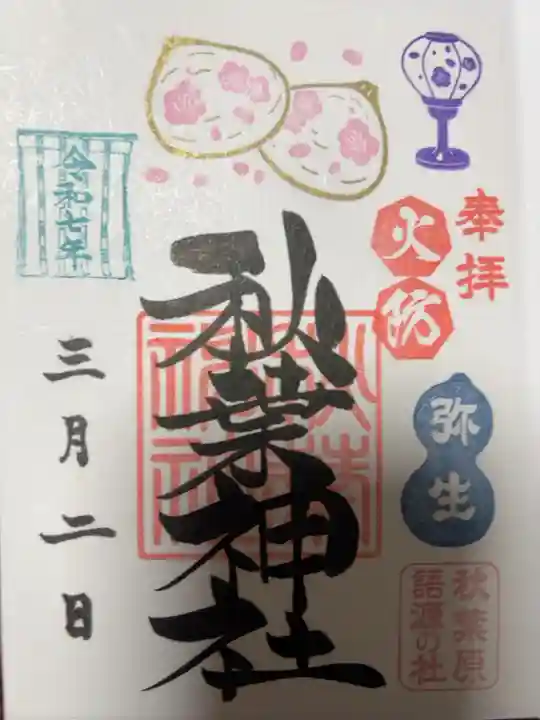 奉拝
火防
弥生
秋葉原
語源の社
秋葉神社
令和七年
三月二日